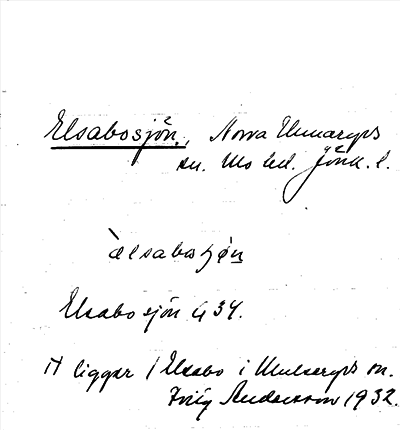 Elsabosjön, Norra Unnaryps
sn. Mo hd. Jönk. l.
`ælsabosjøn
Elsabo sjön G 34.
⊣ ligger / Elsabo i Unnaryps sn.
Andersson 1932.